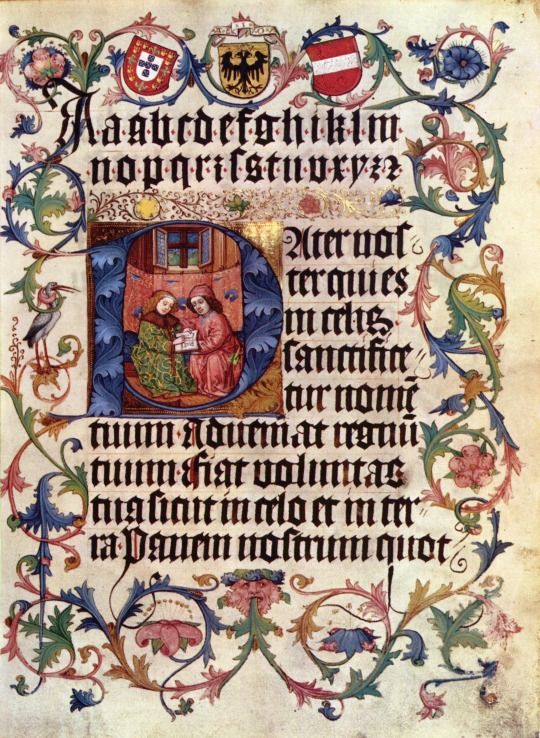 A a a b c d e f g h i k l m
n o p q r ꝛ ſ s t u v x y z ꝛ
Pater noſ
ter qui es
in celis
ſanctifice
tur nomē
tuum·Adueniat regnū
tuum·fiat voluntas
tua ſicut in celo et in ter
ra·Panem noſtrum quot